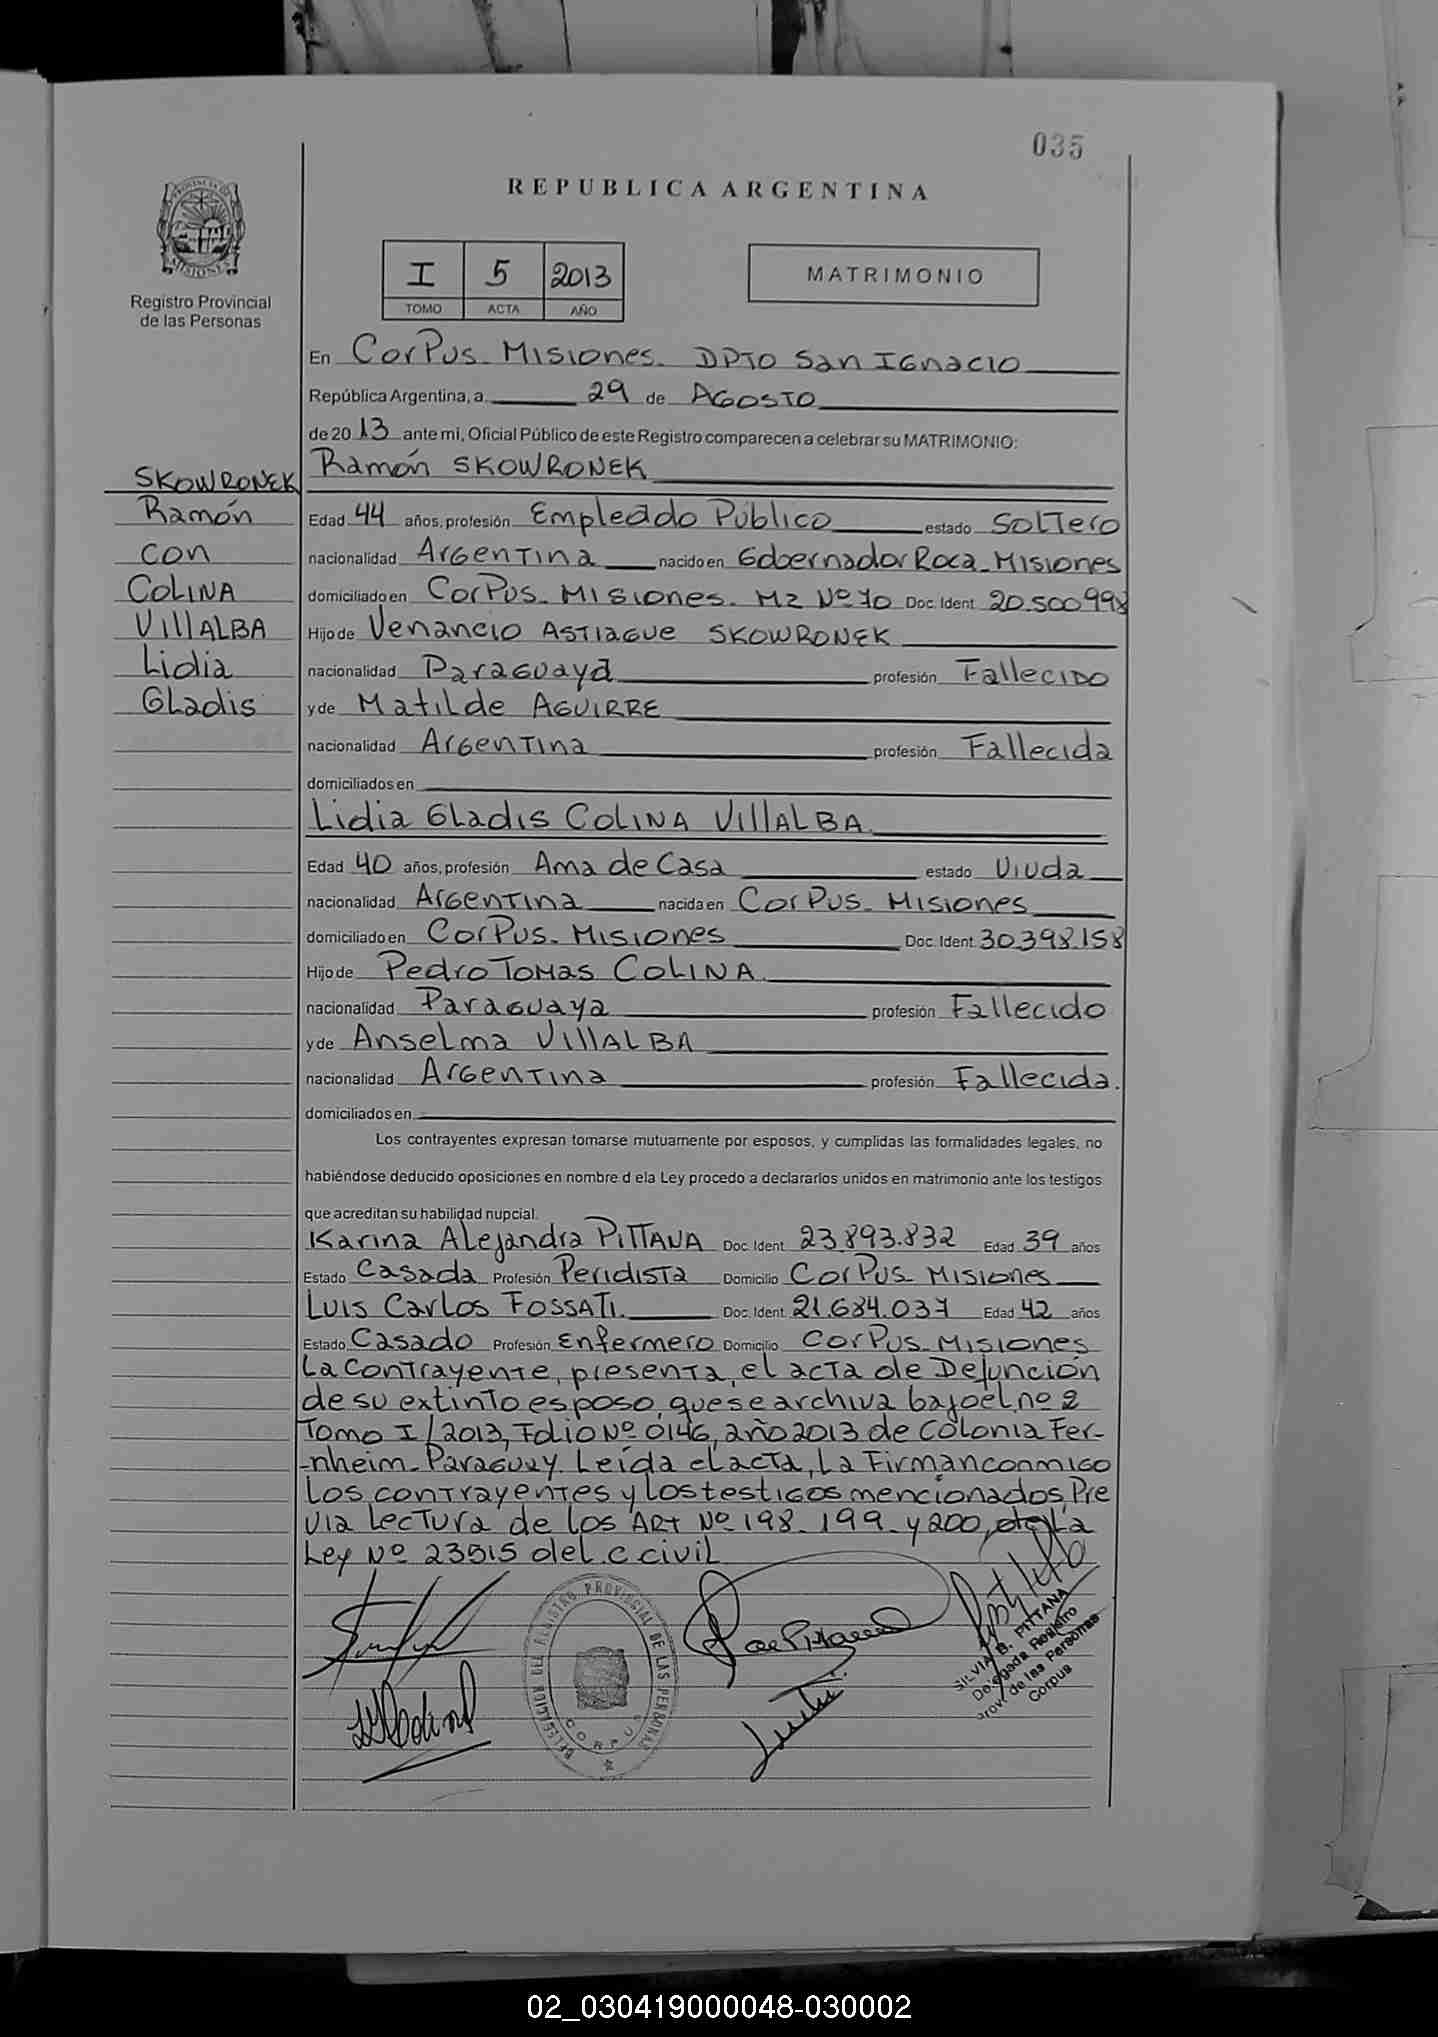 035
REPUBLICA ARGENTINA
PROVINCIA DE
MISIONES
Registro Provincial
de las Personas
I 5 2013
TOMO ACTA AÑO
MATRIMONIO
En Corpus Misiones. DPTO San Ignacio
República Argentina, a 29 de AGOSTO
de 2013 ante mi, Oficial Público de este Registro comparecen a celebrar su MATRIMONIO:
Ramón SKOWRONEK
SKOWRONEK
Ramón
con
COLINA
VillALBA
Lidia
Gladis
Edad 44 años, profesión Empleado Público estado Soltero
nacionalidad Argentina nacido en Gobernador Roca_Misiones
domiciliado en Corpus_Misiones. Mz Nº 10 Doc. Ident. 20.500998
Hijo de Venancio ASTIAGUE SKOWRONEK
nacionalidad Paraguaya profesión Fallecido
y de Matilde AGUIRRE
nacionalidad Argentina profesión Fallecida
domiciliados en
Lidia Gladis COLINA VillALBA
Edad 40 años, profesión Ama de Casa estado Viuda
nacionalidad Argentina nacida en Corpus_Misiones
domiciliado en Corpus_Misiones Doc. Ident. 30.398.158
Hijo de Pedro Tomas COLINA
nacionalidad Paraguaya profesión Fallecido
y de Anselma VillALBA
nacionalidad Argentina profesión Fallecida.
domiciliados en
Los contrayentes expresan tomarse mutuamente por esposos, y cumplidas las formalidades legales, no
habiéndose deducido oposiciones en nombre d ela Ley procedo a declararlos unidos en matrimonio ante los testigos
que acreditan su habilidad nupcial.
Karina Alejandra PITTANA Doc. Ident. 23.893.832 Edad 39 años
Estado Casada Profesión Peridista Domicilio Corpus_Misiones
Luis Carlos FOSSATI. Doc. Ident. 21.684.037 Edad 42 años
Estado Casado Profesión Enfermero Domicilio Corpus_Misiones
La contrayente, presenta, el acta de Defunción
de su extinto esposo, que se archiva bajo el nº 2
Tomo I/2013, Folio Nº 0146, año 2013 de Colonia Fer-
-nheim_Paraguay. Leída el acta, La Firman conmigo
los contrayentes y los testigos mencionados, Pre
via Lectura de los ART Nº 198_199_y 200, de la
Ley Nº 23515 del.c civil
DELEGACION DEL REGISTRO PROVINCIAL DE LAS PERSONAS
CORPUS
SILVIA B. PITTANA
Delegada Registro
Prov. de las Personas
Corpus
02_030419000048-030002